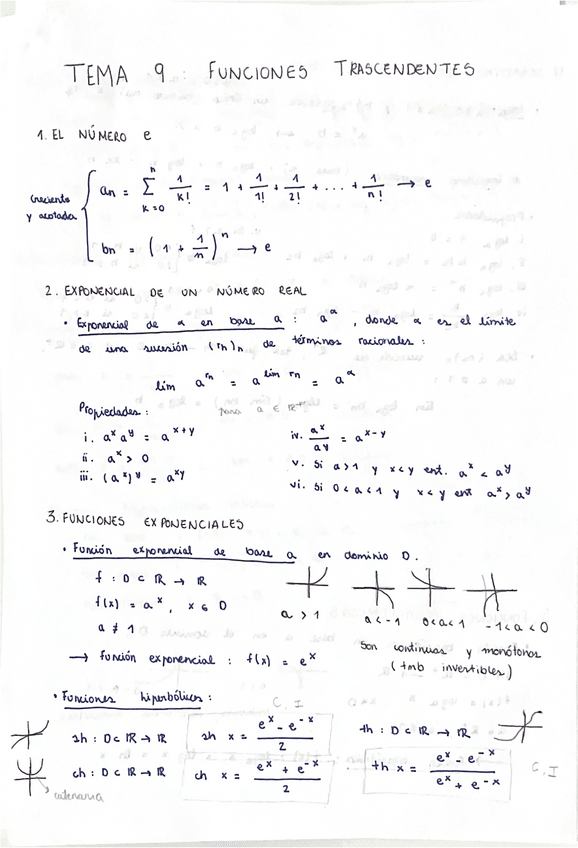 TEMA 9 : FUNCIONES TRASCENDENTES
1. EL NÚMERO e
Creciente y acotada
an = Σ (k=0, n) 1/k! = 1 + 1/1! + 1/2! + ... + 1/n! → e
bn = (1 + 1/n)^n → e
2. EXPONENCIAL DE UN NÚMERO REAL
• Exponencial de α en base a : a^α , donde α es el límite
de una sucesión (rn)n de términos racionales :
lím a^rn = a^lím rn = a^α
Propiedades : para a ∈ ℝ⁺
i. a^x a^y = a^x+y
ii. a^x > 0
iii. (a^x)^y = a^xy
iv. a^x/a^y = a^x-y
v. Si a>1 y x<y ent. a^x < a^y
vi. Si 0<a<1 y x<y ent a^x > a^y
3. FUNCIONES EXPONENCIALES
• Función exponencial de base a en dominio D.
f : D ⊂ ℝ → ℝ
f(x) = a^x , x ∈ D
a ≠ 1
a > 1 a<-1 0<a<1 -1<a<0
Son continuas y monótonas
(tmb invertibles)
→ Función exponencial : f(x) = e^x
• Funciones hiperbólicas :
C. I
sh : D ⊂ ℝ → ℝ sh x = (e^x - e^-x)/2 th : D ⊂ ℝ → ℝ
ch : D ⊂ ℝ → ℝ ch x = (e^x + e^-x)/2 th x = (e^x - e^-x)/(e^x + e^-x) C. I
catenaria